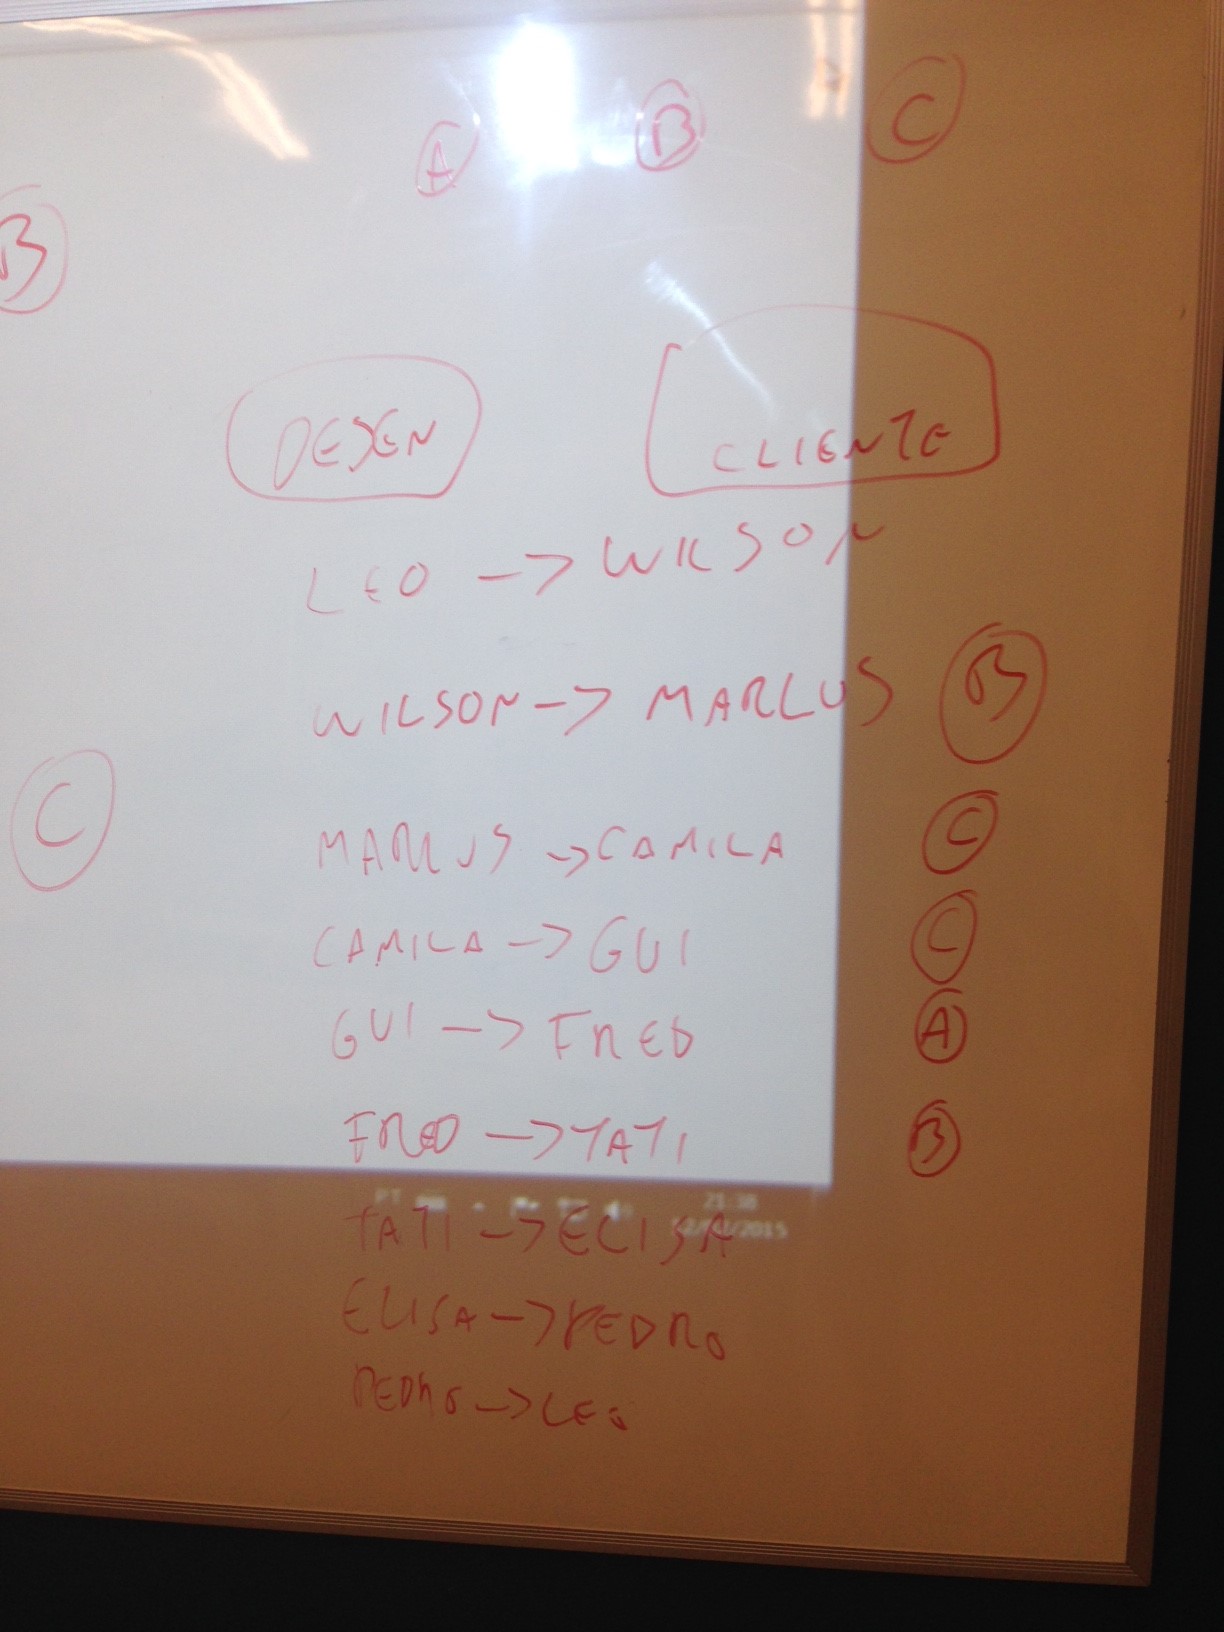 A B C
B
DESEN CLIENTE
LEO -> WILSON
WILSON -> MARCUS B
C
MARCUS -> CAMILA C
CAMILA -> GUI C
GUI -> FRED A
FRED -> TATI B
PT 21:38
TATI -> ELISA
ELISA -> PEDRO
PEDRO -> LEO